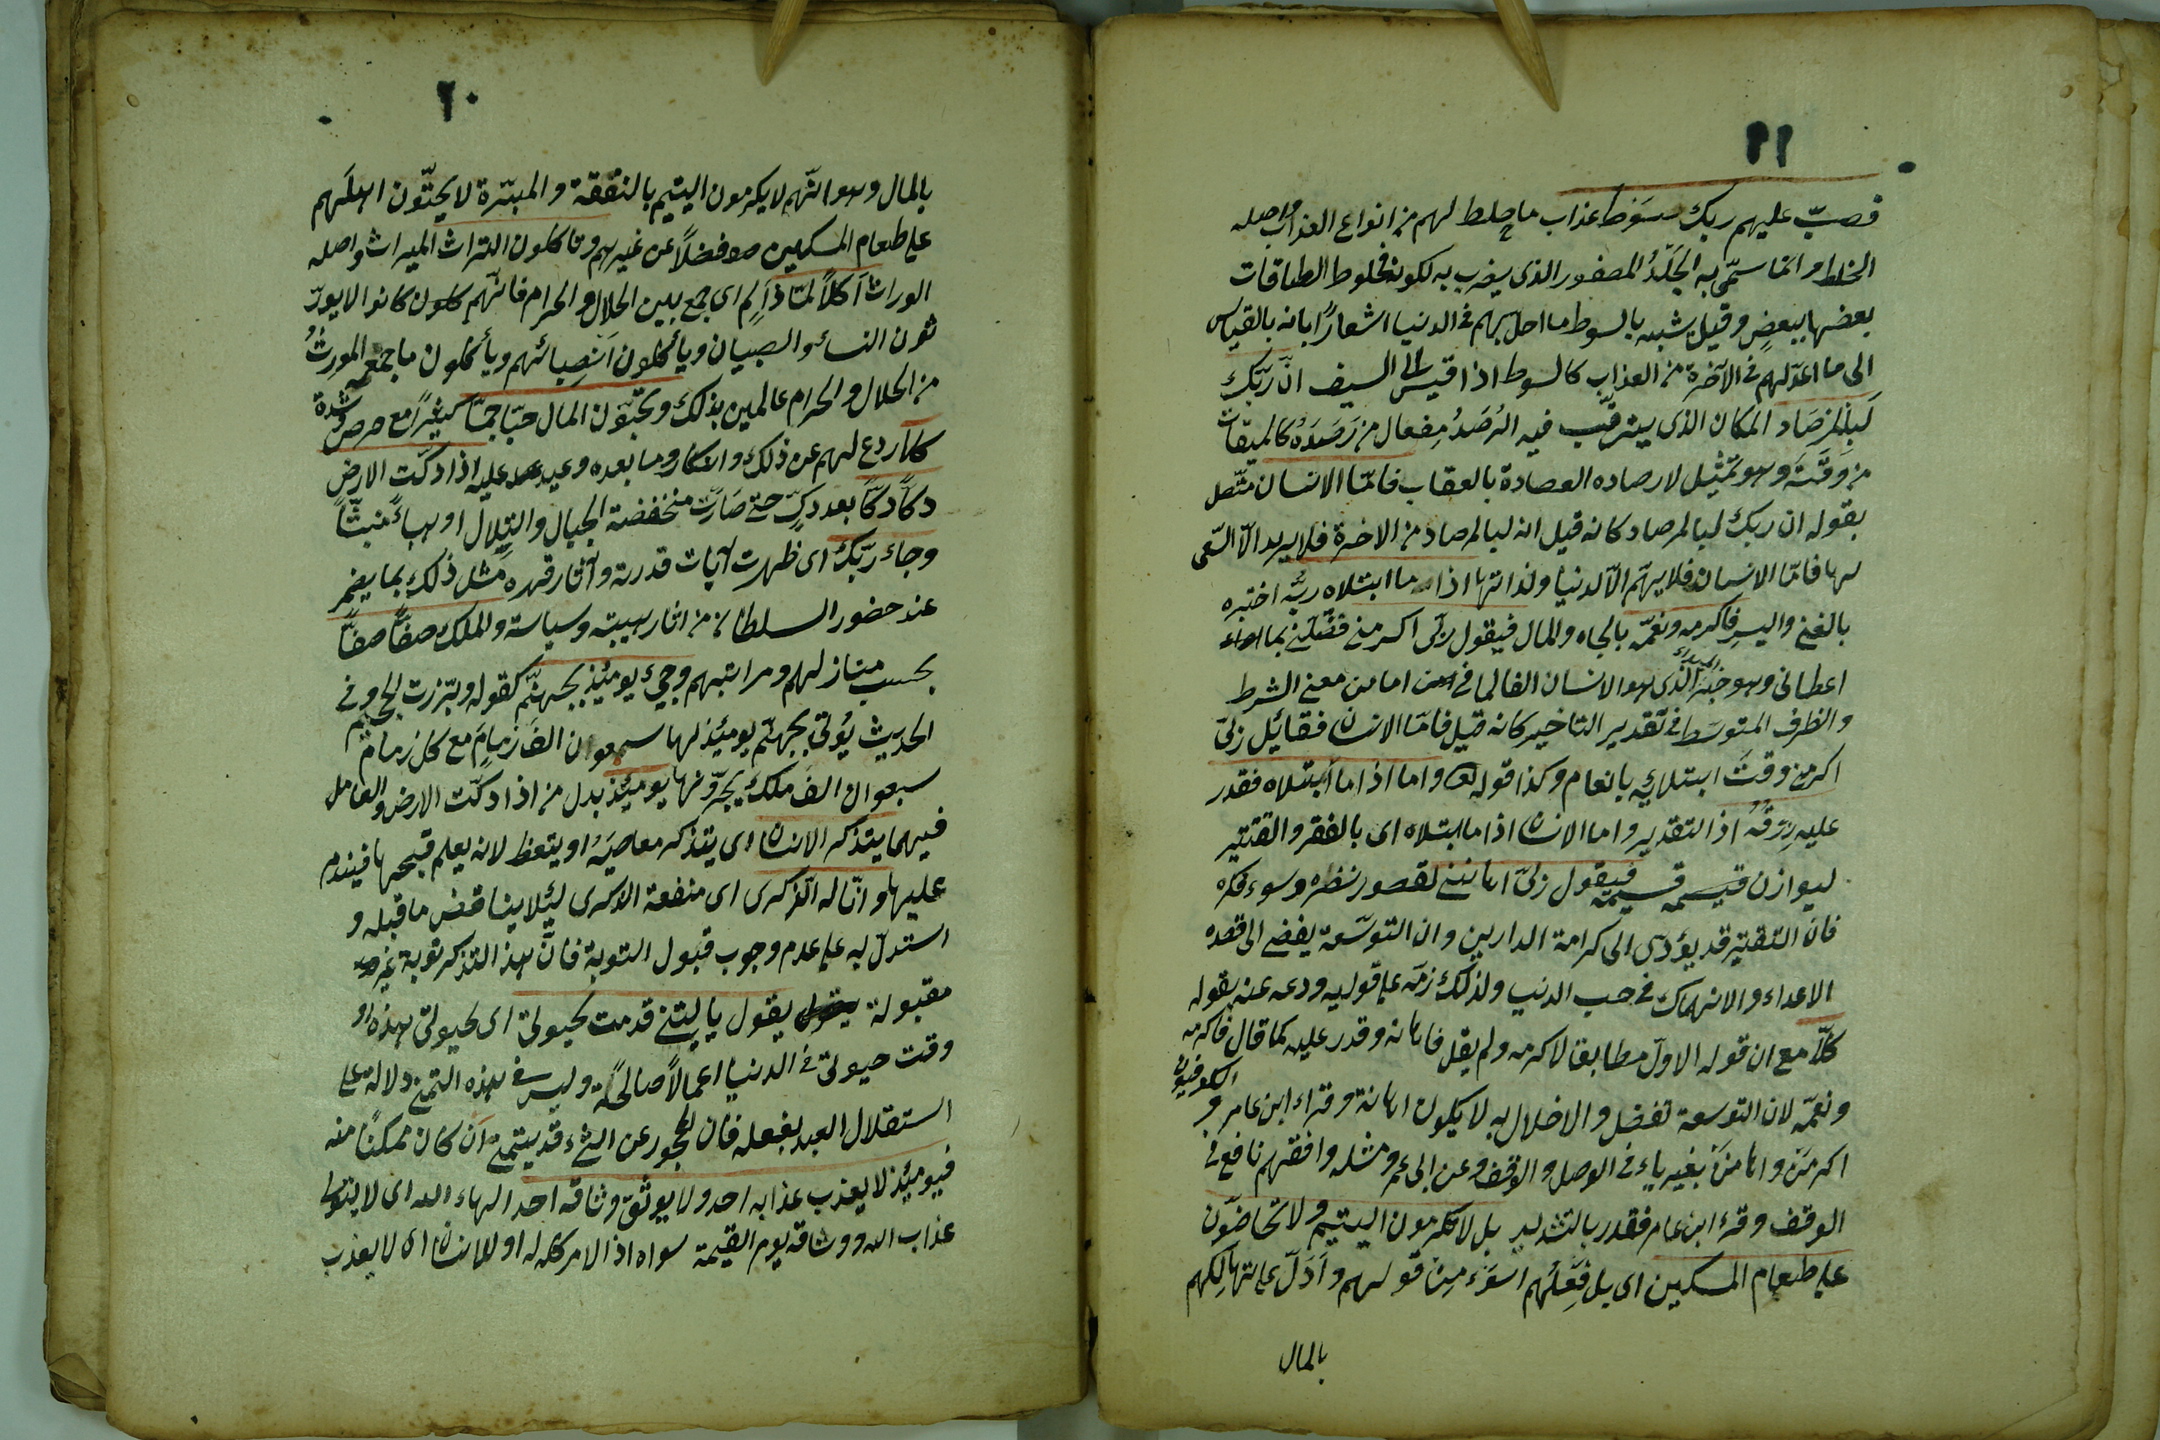 ٢١
فصبّ عليهم ربك سوط عذاب ما خلط لهم من انواع العذاب واصله
الخلط وانما سمّى به الجَلْدُ المضفور الذى يضرب به لكونه مخلوط الطاقات
بعضها ببعضٍ وقيل شبه بالسوط ما احل بهم فى الدنيا اشعارًا بانه بالقياس
الى ما اعدّ لهم فى الآخرة من العذاب كالسوط اذا قيس الى السيف انّ ربّك
لَبِالْمِرْصَاد المكان الذى يترقّب فيه الرُصَدُ مِفعال من رَصَدَهُ كالميقات
من وَقَّتَهَ وهو تمثيل لارصاده العصادة بالعقاب فامّا الانسان متّصل
بقوله ان ربك لبالمرصاد كانه قيل انه لبالمرصاد من الاخرة فلا يريد الّا السّعى
لها فامّا الانسان فلا يهمّه الّا الدنيا ولذاتها اذا ما ابتلاه ربُّه اختبره
بالغنى واليسر فاكرمه ونعّمه بالجاه والمال فيقول ربّى اكرمنى فضّلنى بما
اعطانى وهو خبر المبتداء الّذى هو الانسان الفا لما فى امّا من معنى الشرط
والظرف المتوسّط فى تقدير التاخير كانه قيل فامّا الانسان فقائل ربّى
اكرمنى وقتَ ابتلائِه بالانعام وكذا قوله واما اذا ما ابتلاه فقدر
عليه رِزقَهُ اذ التقدير واما الانسان اذا ما ابتلاه اى بالفقر والتقتير
ليوازن قيسمه قسيمه فيقول ربّى اهاننى لقصور نظره وسوء فكره
فان التقتير قد يؤدّى الى كرامة الدارين وان التوسّعة يفضى الى قصده
الاعداء والانهماك فى حب الدنيا ولذلك ذمّه على قوليه وردعه عنه بقوله
كلّا مع ان قوله الاوّل مطابق لاكرمه ولم يقل فاهانه وقدر عليه كما قال فاكرمه
ونعّمه لان التوسعة تفضل والاخلال به لا يكون اهانة وقراء ابن عامر و الكوفيون
اكرمَنْ واهانَنْ بغير ياء فى الوصل والوقف وعن ابى عمرو مثله وافقهم نافع فى
الوقف وقرء ابن عامر فقدر بالتشديد بل لا تكرمون اليتيم ولا تحاضّون
على طعام المسكين اى بل فِعْلُهم اسوَء مِنْ قولهم وادَلّ على تهالكهم
بالمال
٢٠
بالمال وهو انّهم لا يكرمون اليتيم بالنفقة والمبرّة لا يحثّون اهلَهم
على طعام المسكين فضلًا عن غيرهم وتاكلون التراث الميراث واصله
الوراث اكلًا لمّا ذا لمٍ اى جمع بين الحلال والحرام فانّهم كانوا لا يورّ
ثون النساء والصبيان ويأكلون اَنصِبائهم ويأكلون ما جمعه المورثُ
من الحلال والحرام عالمين بذلك وتحبّون المال حبًّا جمًّا كثيرًا مع حرص وشدة
كلّا ردع لهم عن ذلك وانكار وما بعده وعيد عليه اذا دكّت الارض
دكًّا دكًّا بعد دكٍّ حتى صارت منخفضة الجبال والتلال او هباءً منبثًّا
وجاء ربّك اى ظهرت آيات قدرته وآثار قهره مثّل ذلك بما يضمر
عند حضور السلطان من اثار هيبته وسياسته والملك صفًّا صفًّا
بحسب منازلهم ومراتبهم وجىء يومئذٍ بجهنّم كقوله وبرّزت الجحيم وفى
الحديث يُؤتى بجهنّم يومئذ لها سبعون الفَ زِمامٍ مع كل زمام
سبعون الفَ ملك يجرّونها يومئذ بدل من اذا دكّت الارض والعامل
فيهما يتذكر الانسان اى يتذكر معاصيَهُ او يتعظ لانه يعلم قبحها فيندم
عليها وانّا له الذّكرى اى منفعة الذكرى لئلا يناقض ما قبله و
استدلّ به على عدم وجوب قبول التوبة فانّ هذا التذكر توبة غير
مقبولة يقول يا ليتنى قدمت لحيوتى اى لحيوتى هذه او
وقت حيوتى فى الدنيا اعمالًا صالحًة وليس فى هذه التمنى دلالة على
استقلال العبد بفعله فان المحجور عن الشىء قد يتمنى اَن كان ممكنًا منه
فيومئذ لا يعذب عذابه احد ولا يوثق وثاقه احد الهاء الله اى لا يتولى
عذاب الله ووثاقه يوم القيمة سواه اذ الامر كله له او للانسان اى لا يعذب